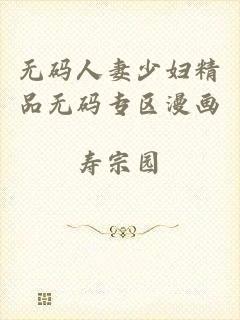 无码人妻少妇精
品无码专区漫画
寿宗园